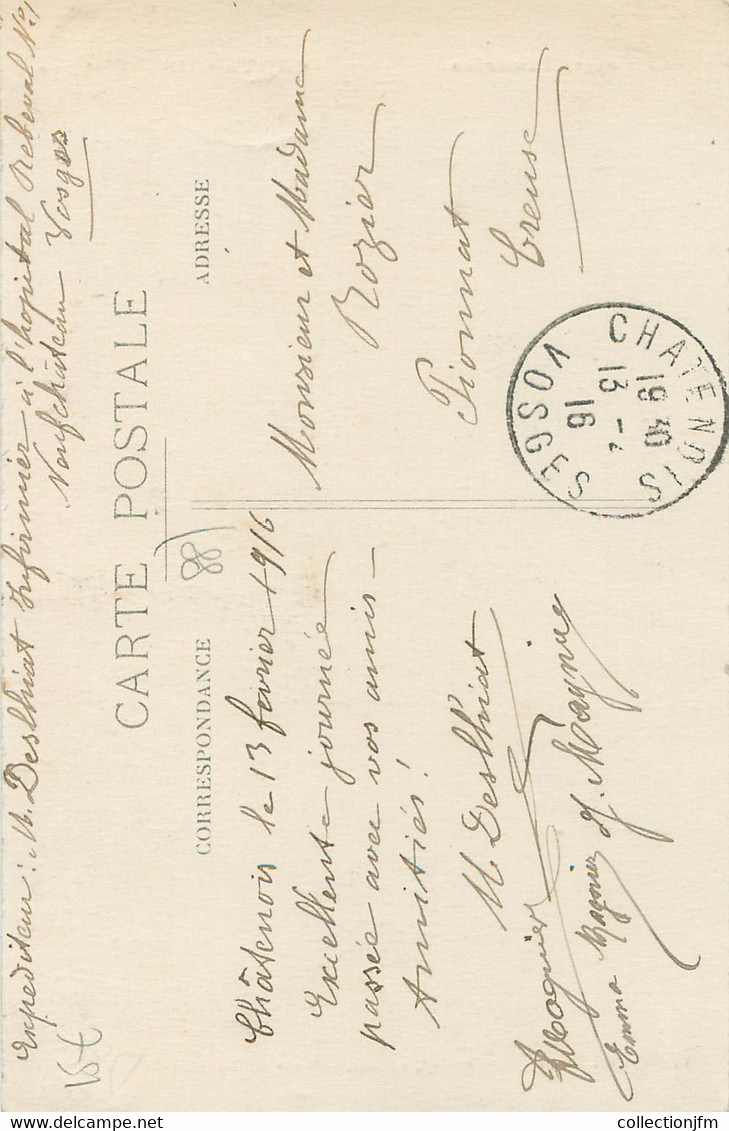 Expediteur : M. Deslhiat Infirmier à l'hopital Rebeval No 1
Neufchâteau Vosges
CARTE POSTALE
CORRESPONDANCE
ADRESSE
Châtenois le 13 février 1916
Excellente journée
passée avec vos amis -
Amitiés !
M. Deslhiat
Magnier
J. Magnier
Emma Magnier
Monsieur et Madame
Rozier
Pionnat
Creuse
CHATENOIS
19 30
13 - 2
16
VOSGES
88
collectionjfm